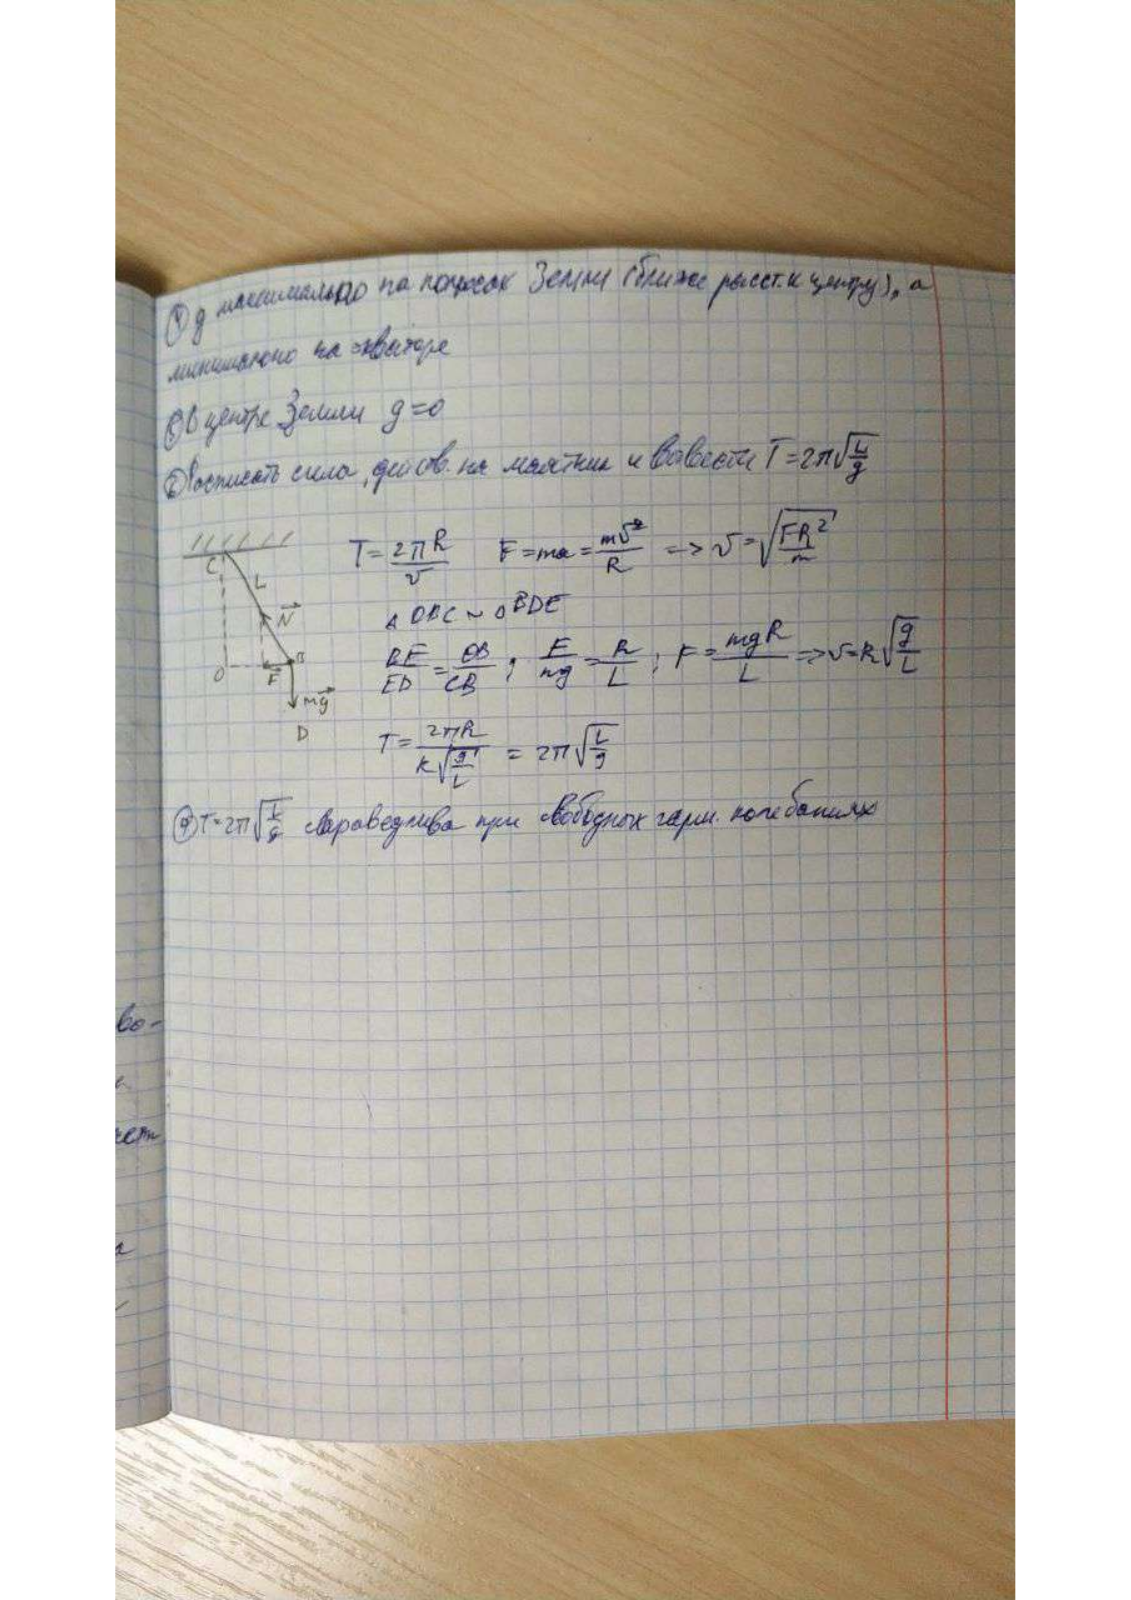 ④ g максимально на полюсах Земли (ближе расст. к центру), а
минимально на экваторе
⑤ В центре Земли g=0
⑥ Расписать силы, действ. на маятник и вывести T=2π√(L/g)
C L N⃗ B O F⃗ mg⃗ D
T = 2πR/v F=ma= mv²/R => v=√(FR²/m)
△OBC ~ △BDE
BE/ED = OB/CB ; F/mg = R/L ; F= mgR/L => v=R√(g/L)
T= 2πR/(R√(g/L)) = 2π√(L/g)
T=2π√(L/g) справедлива при свободных гарм. колебаниях
во-